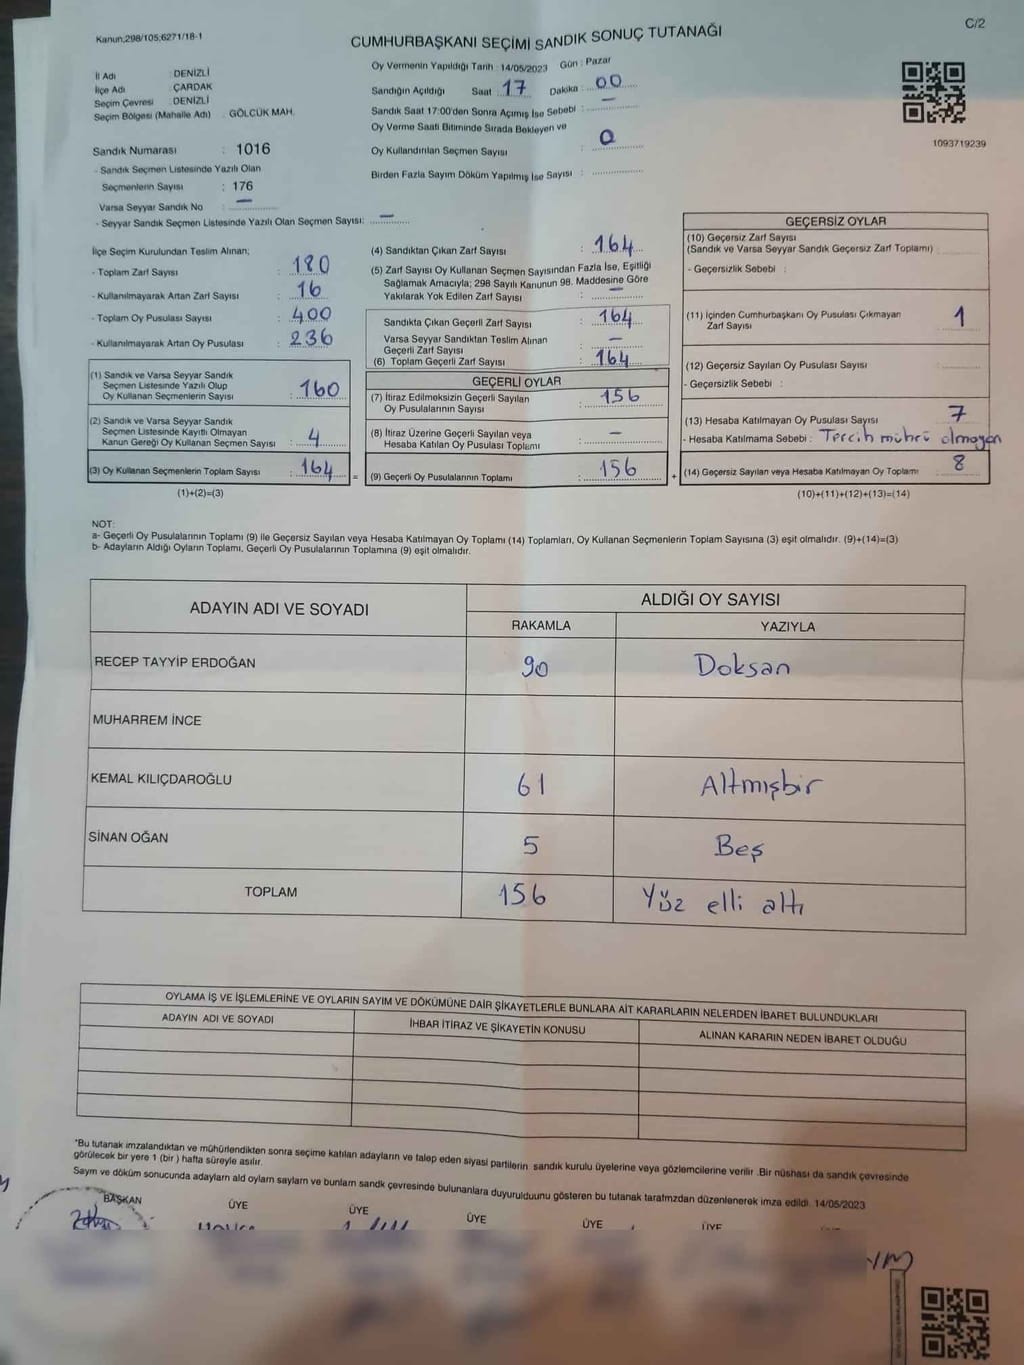 Kanun;298/105;6271/18-1
C/2
CUMHURBAŞKANI SEÇİMİ SANDIK SONUÇ TUTANAĞI
İl Adı DENİZLİ
İlçe Adı ÇARDAK
Seçim Çevresi DENİZLİ
Seçim Bölgesi (Mahalle Adı) : GÖLCÜK MAH.
Oy Vermenin Yapıldığı Tarih : 14/05/2023 Gün : Pazar
Sandığın Açıldığı Saat : 17 Dakika : 00
Sandık Saat 17:00'den Sonra Açımış İse Sebebi : —
Oy Verme Saati Bitiminde Sırada Bekleyen ve
Oy Kullandırılan Seçmen Sayısı : 0
Birden Fazla Sayım Döküm Yapılmış İse Sayısı :
1093719239
Sandık Numarası : 1016
- Sandık Seçmen Listesinde Yazılı Olan
Seçmenlerin Sayısı : 176
Varsa Seyyar Sandık No : —
- Seyyar Sandık Seçmen Listesinde Yazılı Olan Seçmen Sayısı: —
İlçe Seçim Kurulundan Teslim Alınan;
- Toplam Zarf Sayısı : 180
- Kullanılmayarak Artan Zarf Sayısı : 16
- Toplam Oy Pusulası Sayısı : 400
- Kullanılmayarak Artan Oy Pusulası : 236
(1) Sandık ve Varsa Seyyar Sandık
Seçmen Listesinde Yazılı Olup
Oy Kullanan Seçmenlerin Sayısı : 160
(2) Sandık ve Varsa Seyyar Sandık
Seçmen Listesinde Kayıtlı Olmayan
Kanun Gereği Oy Kullanan Seçmen Sayısı : 4
(3) Oy Kullanan Seçmenlerin Toplam Sayısı : 164
(1)+(2)=(3)
(4) Sandıktan Çıkan Zarf Sayısı : 164
(5) Zarf Sayısı Oy Kullanan Seçmen Sayısından Fazla İse, Eşitliği
Sağlamak Amacıyla; 298 Sayılı Kanunun 98. Maddesine Göre
Yakılarak Yok Edilen Zarf Sayısı : —
Sandıkta Çıkan Geçerli Zarf Sayısı : 164
Varsa Seyyar Sandıktan Teslim Alınan
Geçerli Zarf Sayısı : —
(6) Toplam Geçerli Zarf Sayısı : 164
GEÇERLİ OYLAR
(7) İtiraz Edilmeksizin Geçerli Sayılan
Oy Pusulalarının Sayısı : 156
(8) İtiraz Üzerine Geçerli Sayılan veya
Hesaba Katılan Oy Pusulası Toplamı : —
= (9) Geçerli Oy Pusulalarının Toplamı : 156
GEÇERSİZ OYLAR
(10) Geçersiz Zarf Sayısı
(Sandık ve Varsa Seyyar Sandık Geçersiz Zarf Toplamı) :
- Geçersizlik Sebebi :
(11) İçinden Cumhurbaşkanı Oy Pusulası Çıkmayan
Zarf Sayısı 1
(12) Geçersiz Sayılan Oy Pusulası Sayısı
- Geçersizlik Sebebi :
(13) Hesaba Katılmayan Oy Pusulası Sayısı 7
- Hesaba Katılmama Sebebi : Tercih mührü olmayan
+ (14) Geçersiz Sayılan veya Hesaba Katılmayan Oy Toplamı : 8
(10)+(11)+(12)+(13)=(14)
NOT:
a- Geçerli Oy Pusulalarının Toplamı (9) ile Geçersiz Sayılan veya Hesaba Katılmayan Oy Toplamı (14) Toplamları, Oy Kullanan Seçmenlerin Toplam Sayısına (3) eşit olmalıdır. (9)+(14)=(3)
b- Adayların Aldığı Oyların Toplamı, Geçerli Oy Pusulalarının Toplamına (9) eşit olmalıdır.
ADAYIN ADI VE SOYADI
ALDIĞI OY SAYISI
RAKAMLA YAZIYLA
RECEP TAYYİP ERDOĞAN 90 Doksan
MUHARREM İNCE
KEMAL KILIÇDAROĞLU 61 Altmışbir
SİNAN OĞAN 5 Beş
TOPLAM 156 Yüz elli altı
OYLAMA İŞ VE İŞLEMLERİNE VE OYLARIN SAYIM VE DÖKÜMÜNE DAİR ŞİKAYETLERLE BUNLARA AİT KARARLARIN NELERDEN İBARET BULUNDUKLARI
ADAYIN ADI VE SOYADI İHBAR İTİRAZ VE ŞİKAYETİN KONUSU ALINAN KARARIN NEDEN İBARET OLDUĞU
*Bu tutanak imzalandıktan ve mühürlendikten sonra seçime katılan adayların ve talep eden siyasi partilerin sandık kurulu üyelerine veya gözlemcilerine verilir .Bir nüshası da sandık çevresinde
görülecek bir yere 1 (bir ) hafta süreyle asılır.
Sayım ve döküm sonucunda adayların ald oyların sayların ve bunların sandk çevresinde bulunanlara duyurulduunu gösteren bu tutanak tarafmzdan düzenlenerek imza edildi. 14/05/2023
BAŞKAN ÜYE ÜYE ÜYE ÜYE ÜYE